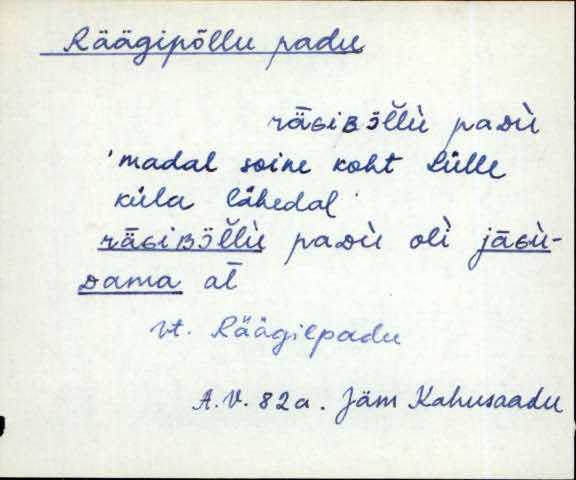 Räägipõllu padu
rāɢiʙɔ̈l̆lù paᴅù
'madal soine koht Sülle
küla lähedal'
rāɢiʙɔ̈l̆lù paᴅù oli jāɢù-
ᴅama al̄
vt. Räägilpadu
A.V. 82a. Jäm Kahusaadu